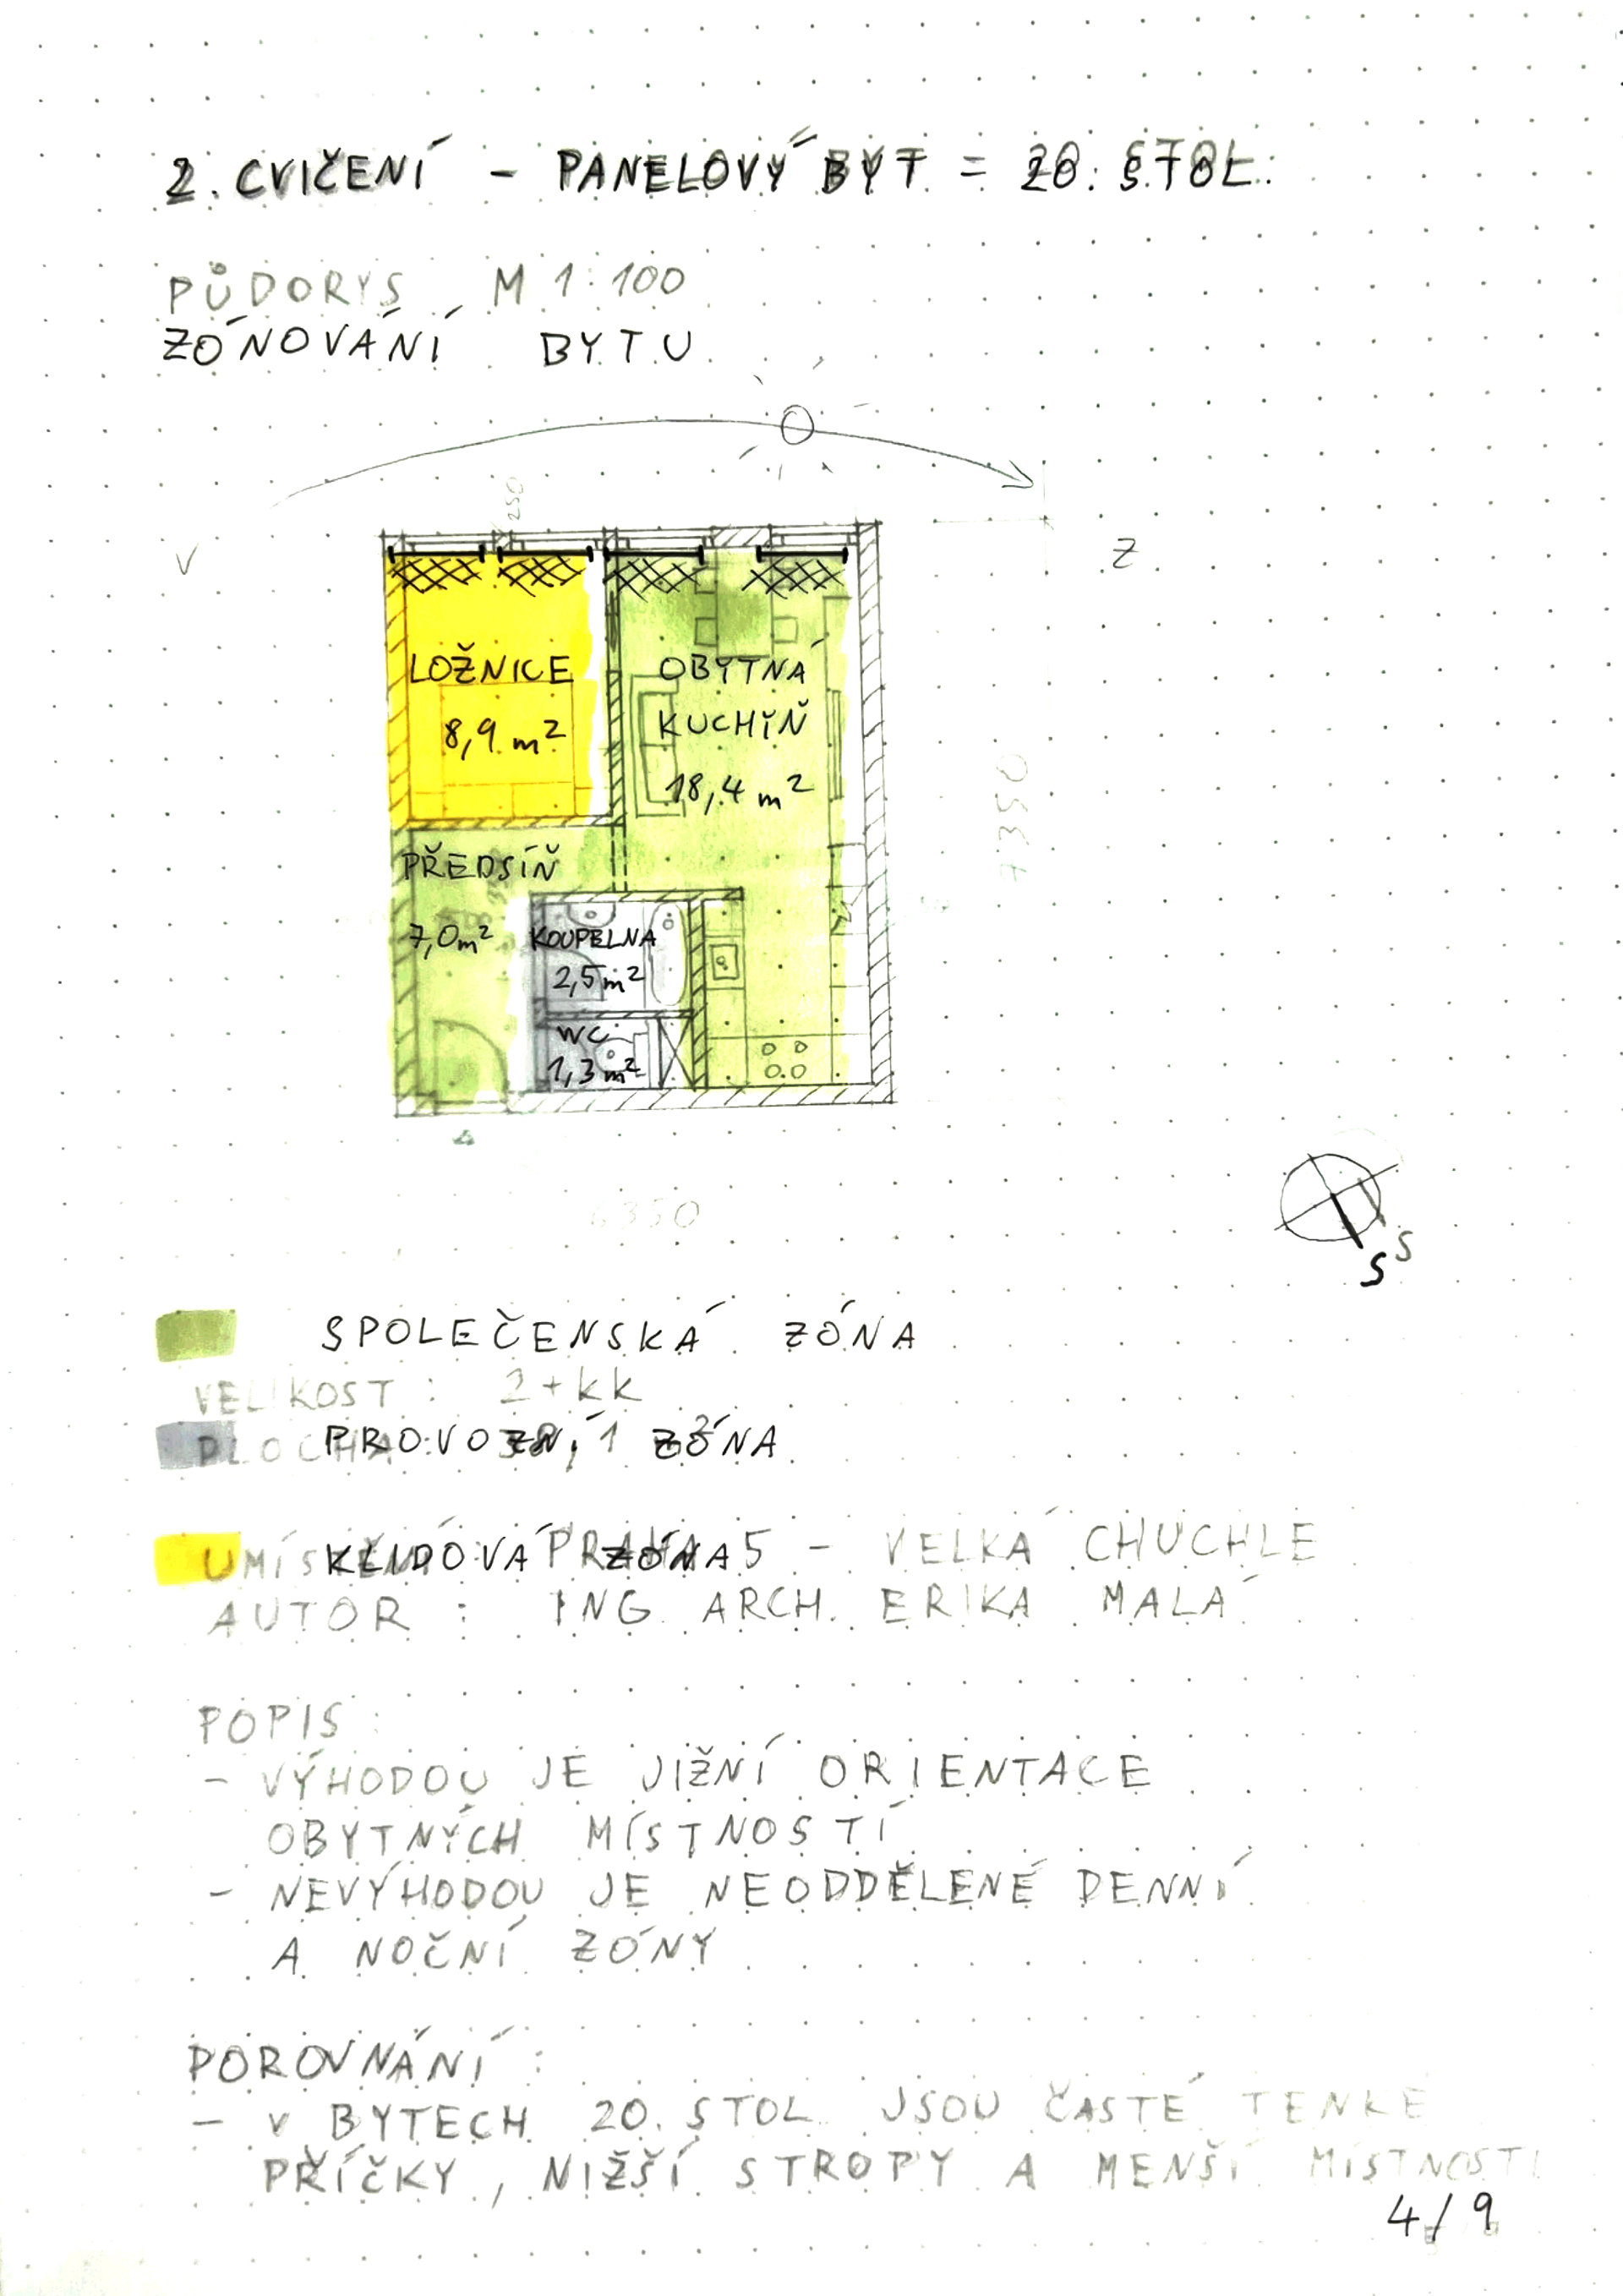 2. CVIČENÍ - PANELOVÝ BYT = 20. STOL.
PŮDORYS M 1:100
ZÓNOVÁNÍ BYTU
250
V
Z
LOŽNICE
8,9 m²
OBÝTNÁ
KUCHÍŇ
18,4 m²
7350
PŘEDSÍŇ
7,0 m²
KOUPELNA
2,5 m²
WC
1,3 m²
6350
S
S
SPOLEČENSKÁ ZÓNA
VELIKOST: 2+kk
PROVOZNÍ ZÓNA
PLOCHA:
KLIDOVÁ ZÓNA
UMÍSTĚNÍ: PRAHA 5 - VELKÁ CHUCHLE
AUTOR: ING. ARCH. ERIKA MALÁ
POPIS:
- VÝHODOU JE JIŽNÍ ORIENTACE
OBYTNÝCH MÍSTNOSTÍ
- NEVÝHODOU JE NEODDĚLENÉ DENNÍ
A NOČNÍ ZÓNY
POROVNÁNÍ:
- V BYTECH 20. STOL. JSOU ČASTÉ TENKÉ
PŘÍČKY, NIŽŠÍ STROPY A MENŠÍ MÍSTNOSTI
4/9